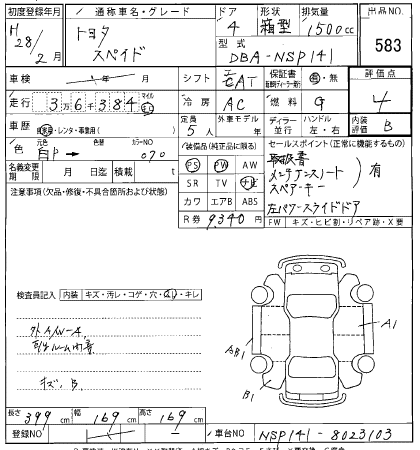 初度登録年月 通称車名・グレード ドア 形状 排気量 出品NO.
H 28/2月 トヨタ スペイド 4 箱型 1500cc 583
型式 DBA-NSP141
車検 年 月 シフト AT 保証書 有・無 評価点
走行 3万6千384 マイル km 冷房 AC 燃料 G 4
車歴 自家用・レンタ・事業用( ) 定員 5人 外車モデル 年 ディーラー 並行 ハンドル 左・右 内装評価 B
色 元色 白P → 色替 カラーNO 070
装備品(純正品に限る) セールスポイント(正常に機能するもの)
名義変更期限 月 日迄 積載 t
PS PW AW 取扱書
メンテナンスノート
スペアーキー
有
SR TV ナビ
注意事項(欠品・修復・不具合箇所および状態)
カワ エアB ABS 左パワースライドドア
R券 9,340円 FW キズ・ヒビ割・リペア跡・X要
検査員記入 内装 キズ・汚レ・コゲ・穴・・キレ
キズ、B
A1
AB1
B1
長さ 399cm 幅 169cm 高さ 169cm
登録NO 車台NO NSP141-8023103